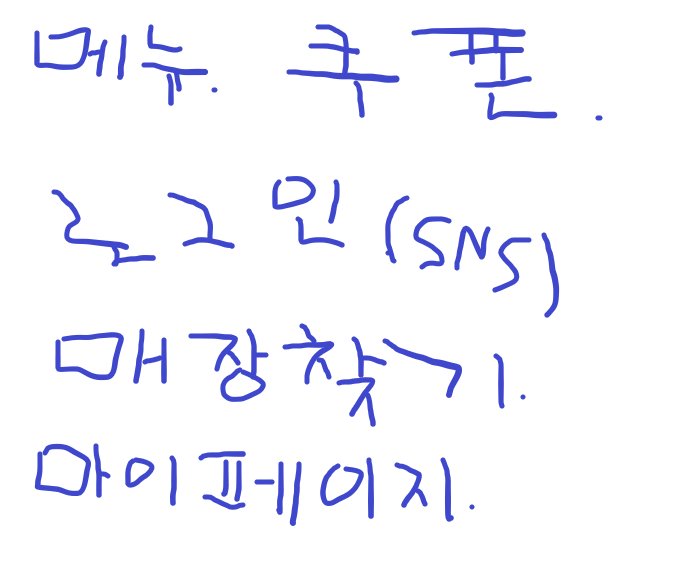 메뉴. 쿠폰.
로그인 (SNS)
매장찾기.
마이페이지.